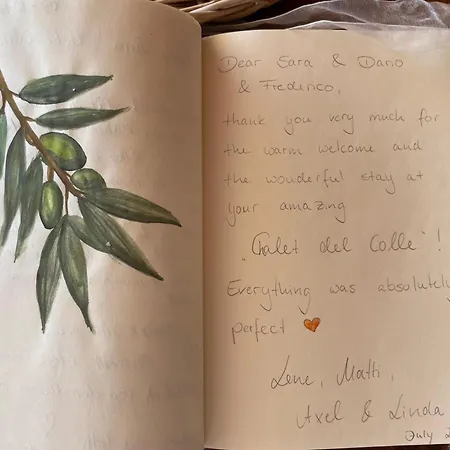 Dear Sara & Dario
& Frederico,
thank you very much for
the warm welcome and
the wonderful stay at
your amazing
"Chalet del Colle"!
Everything was absolutely
perfect
Lene, Matti,
Axel & Linda
July